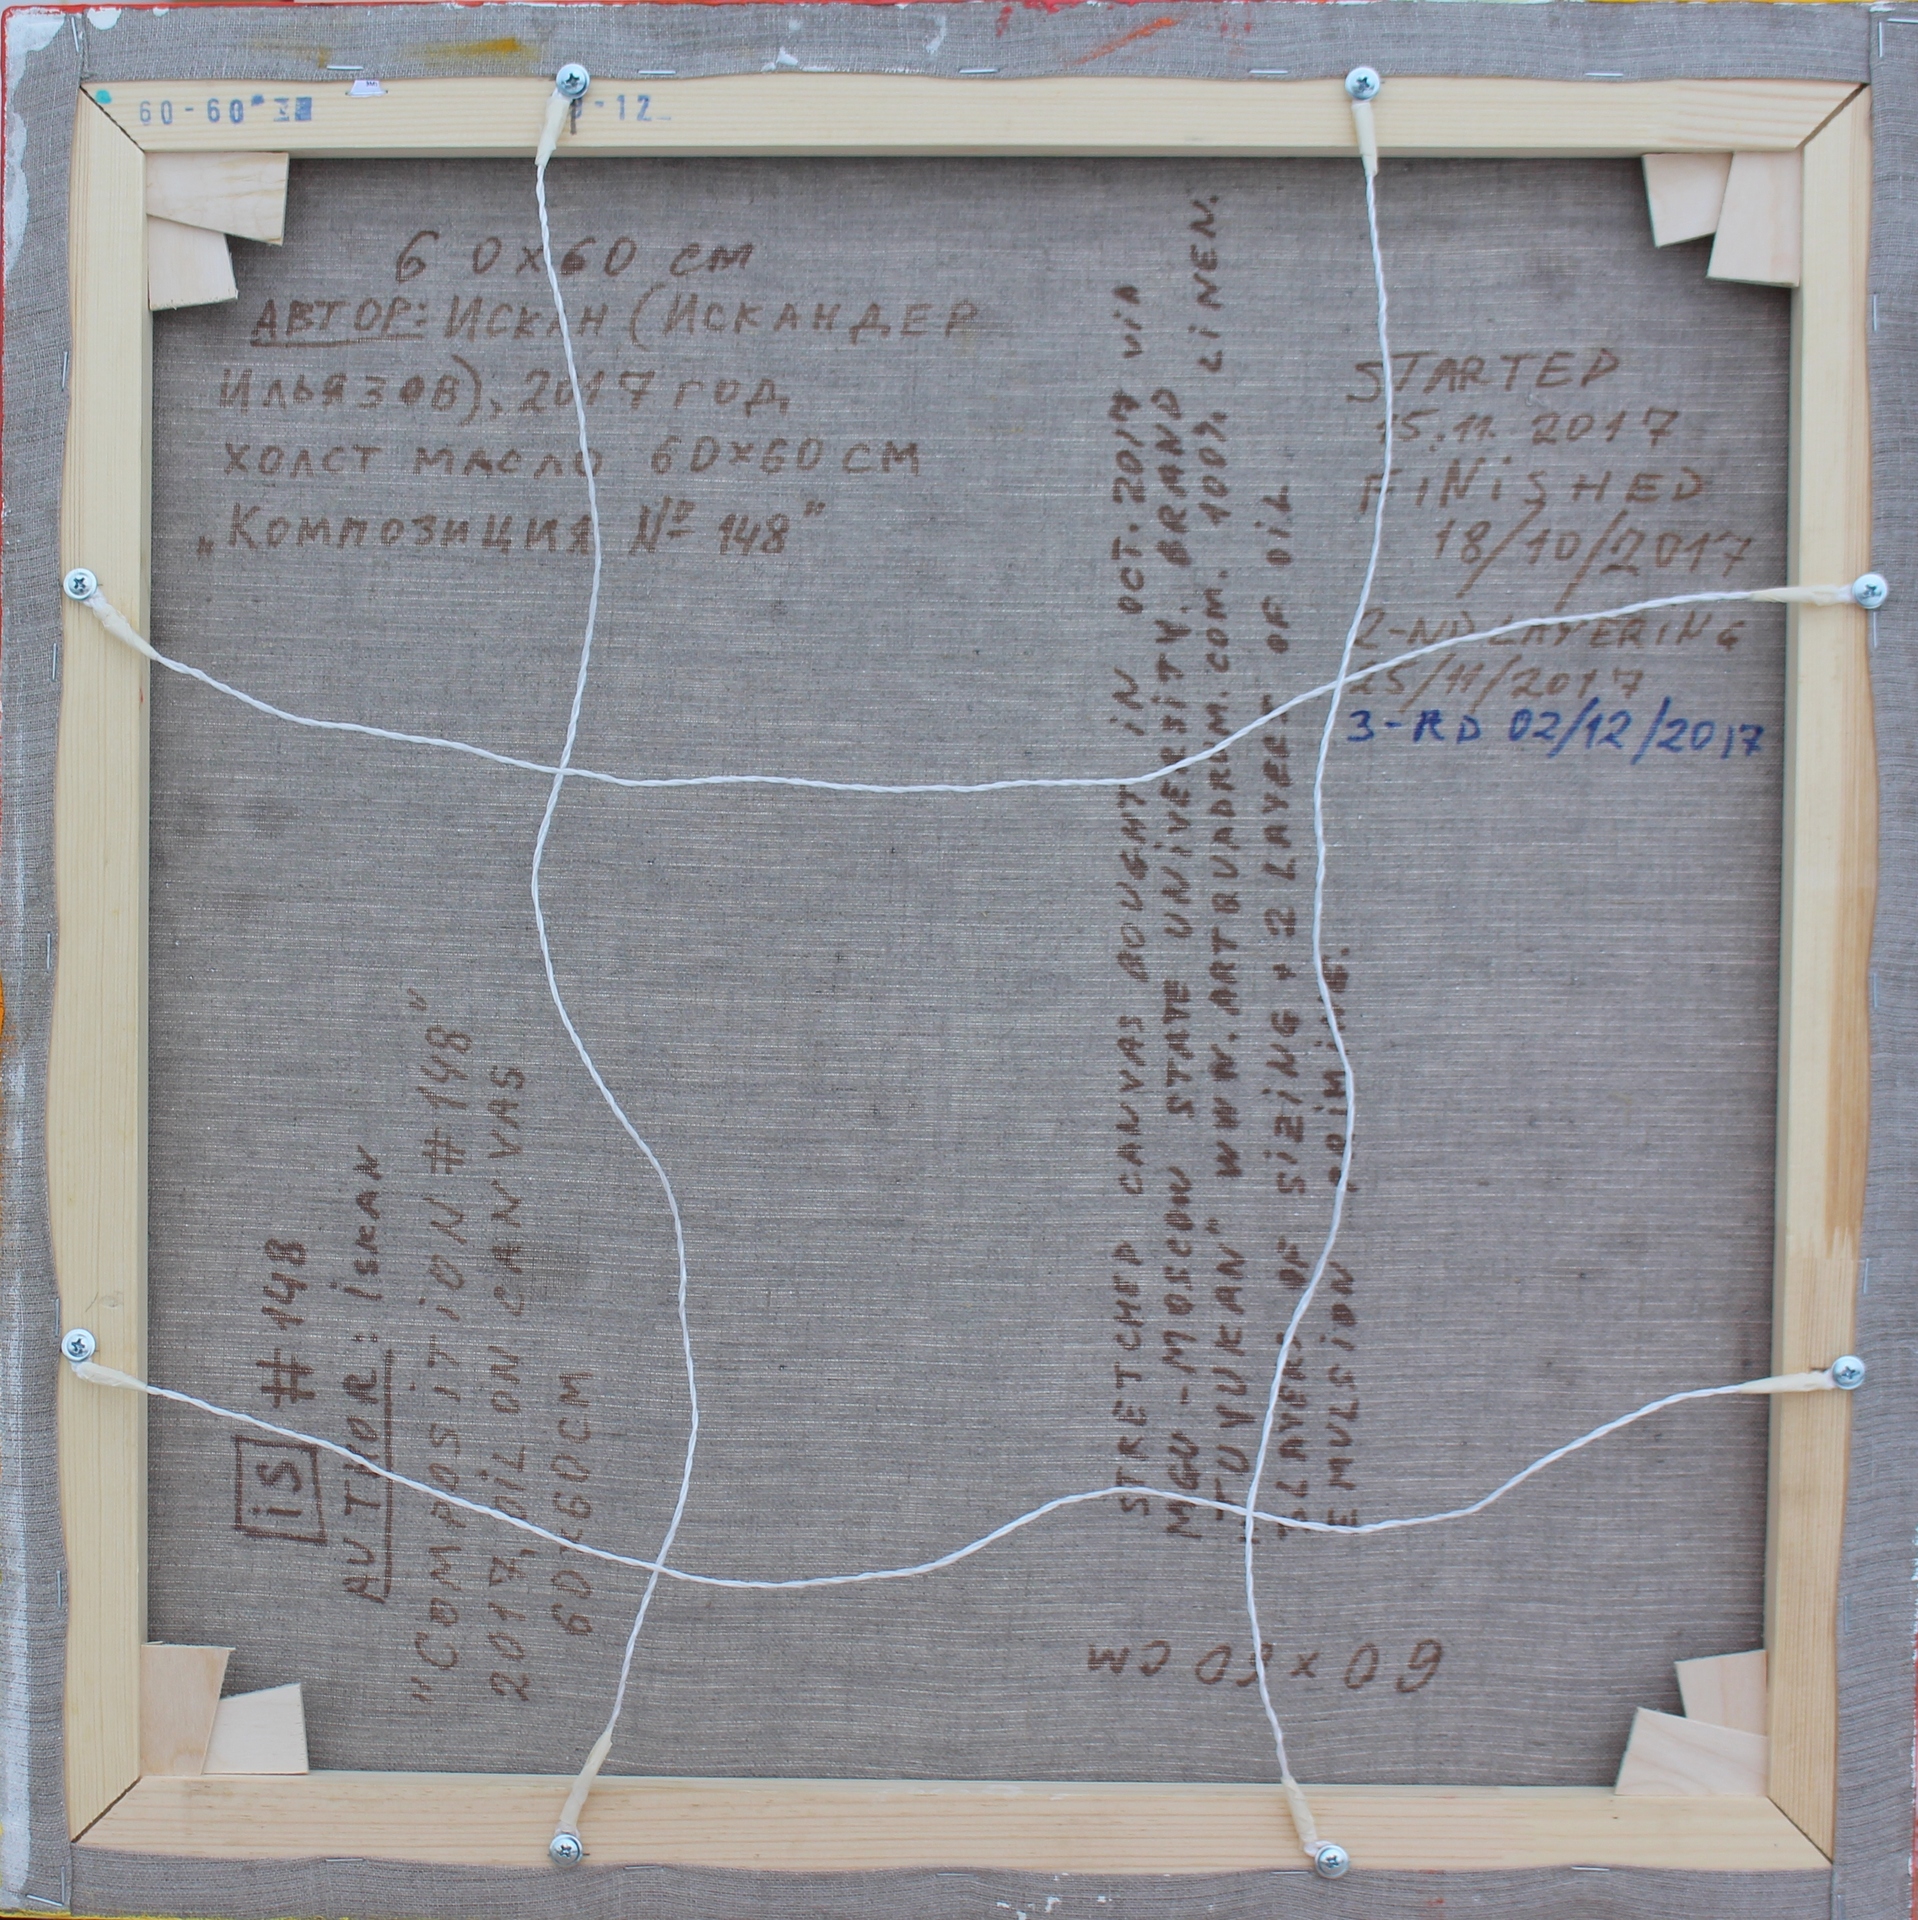 60-60
-12
6 0x60 см
АВТОР: ИСКАН (ИСКАНДЕР
ИЛЬЯЗОВ), 2017 ГОД,
ХОЛСТ МАСЛО 60x60 СМ
„КОМПОЗИЦИЯ № 148"
STARTED
15.11.2017
FiNiSHED
18/10/2017
2-ND LAYERiNG
25/11/2017
3-RD 02/12/2017
STRETCHED CANVAS BOUGHT iN OCT. 2017 ViA
MGU - MOSCOW STATE UNiVERSiTY. BRAND
"TUYUKAN" WWW.ARTQUADRUM.COM. 100% LiNEN.
LAYERS OF SiZiNG + 2 LAYERS OF OiL
EMULSiON PRiMiNG.
iS #148
AUTHOR: iSKAN
"COMPOSiTiON #148"
2017, OiL ON CANVAS
60x60CM
60 x 60 CM